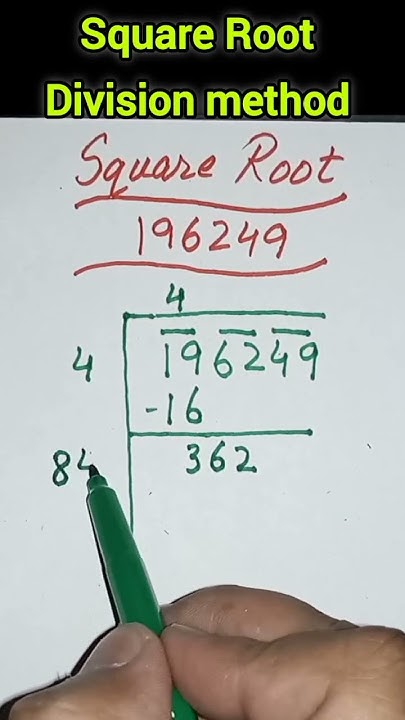 Square Root
Division method
Square Root
196249
4
4 196249
-16
84 362